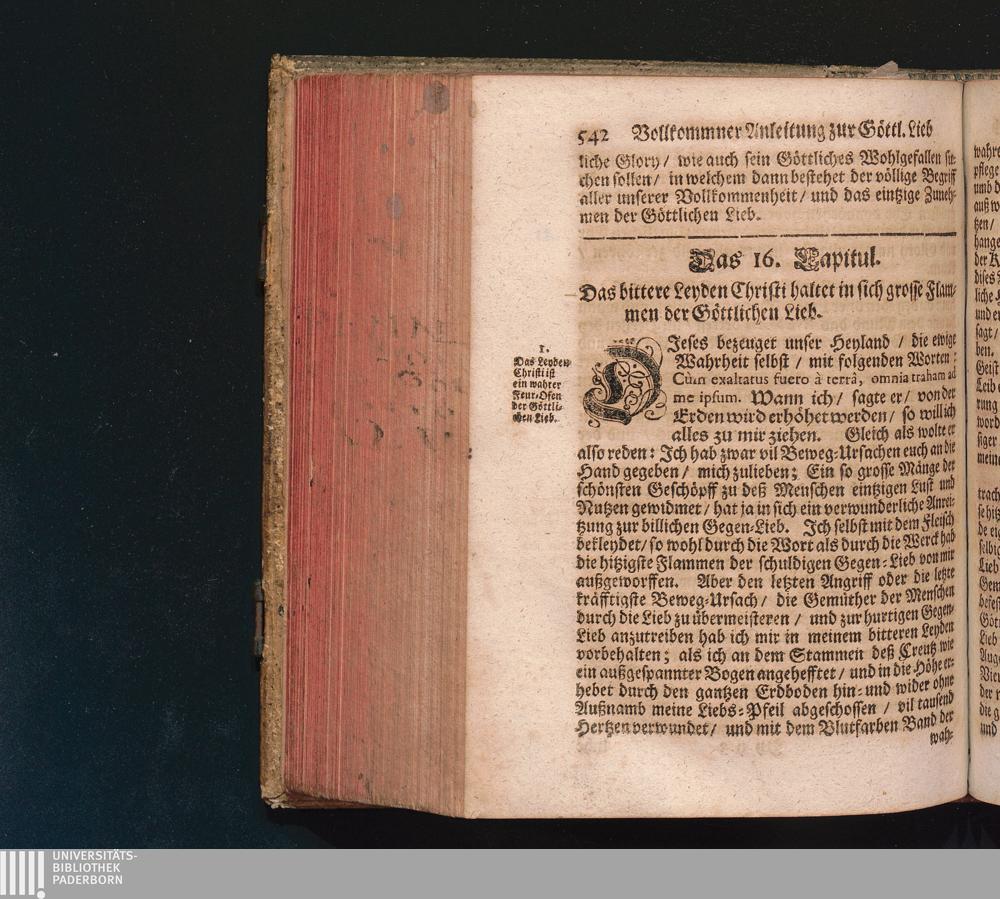 542 Vollkommner Anleitung zur Göttl. Lieb
liche Glory / wie auch sein Göttliches Wohlgefallen su-
chen sollen / in welchem dann bestehet der völlige Begriff
aller unserer Vollkommenheit / und das eintzige Zuneh-
men der Göttlichen Lieb.
Das 16. Capitul.
Das bittere Leyden Christi haltet in sich grosse Flam-
men der Göttlichen Lieb.
1.
Das Leyden
Christi ist
ein wahrer
Feur-Ofen
der Göttli-
chen Lieb.
DJeses bezeuget unser Heyland / die ewige
Wahrheit selbst / mit folgenden Worten:
Cùm exaltatus fuero â terrâ, omnia traham ad
me ipsum. Wann ich / sagte er / von der
Erden wird erhöhet werden / so will ich
alles zu mir ziehen. Gleich als wolte er
also reden: Jch hab zwar vil Beweg-Ursachen euch an die
Hand gegeben / mich zulieben; Ein so grosse Mänge der
schönsten Geschöpff zu deß Menschen eintzigen Lust und
Nutzen gewidmet / hat ja in sich ein verwunderliche Anrei-
tzung zur billichen Gegen-Lieb. Jch selbst mit dem Fleisch
bekleydet / so wohl durch die Wort als durch die Werck hab
die hitzigste Flammen der schuldigen Gegen-Lieb von mir
außgeworffen. Aber den letzten Angriff oder die letzte
kräfftigste Beweg-Ursach / die Gemüther der Menschen
durch die Lieb zu übermeisteren / und zur hurtigen Gegen-
Lieb anzutreiben hab ich mir in meinem bitteren Leyden
vorbehalten; als ich an dem Stammen deß Creutz wie
ein außgespannter Bogen angehefftet / und in die Höhe er-
hebet durch den gantzen Erdboden hin- und wider ohne
Außnamb meine Liebs-Pfeil abgeschossen / vil tausend
Hertzen verwundet / und mit dem Blutfarben Band der
wah-
UNIVERSITÄTS-
BIBLIOTHEK
PADERBORN